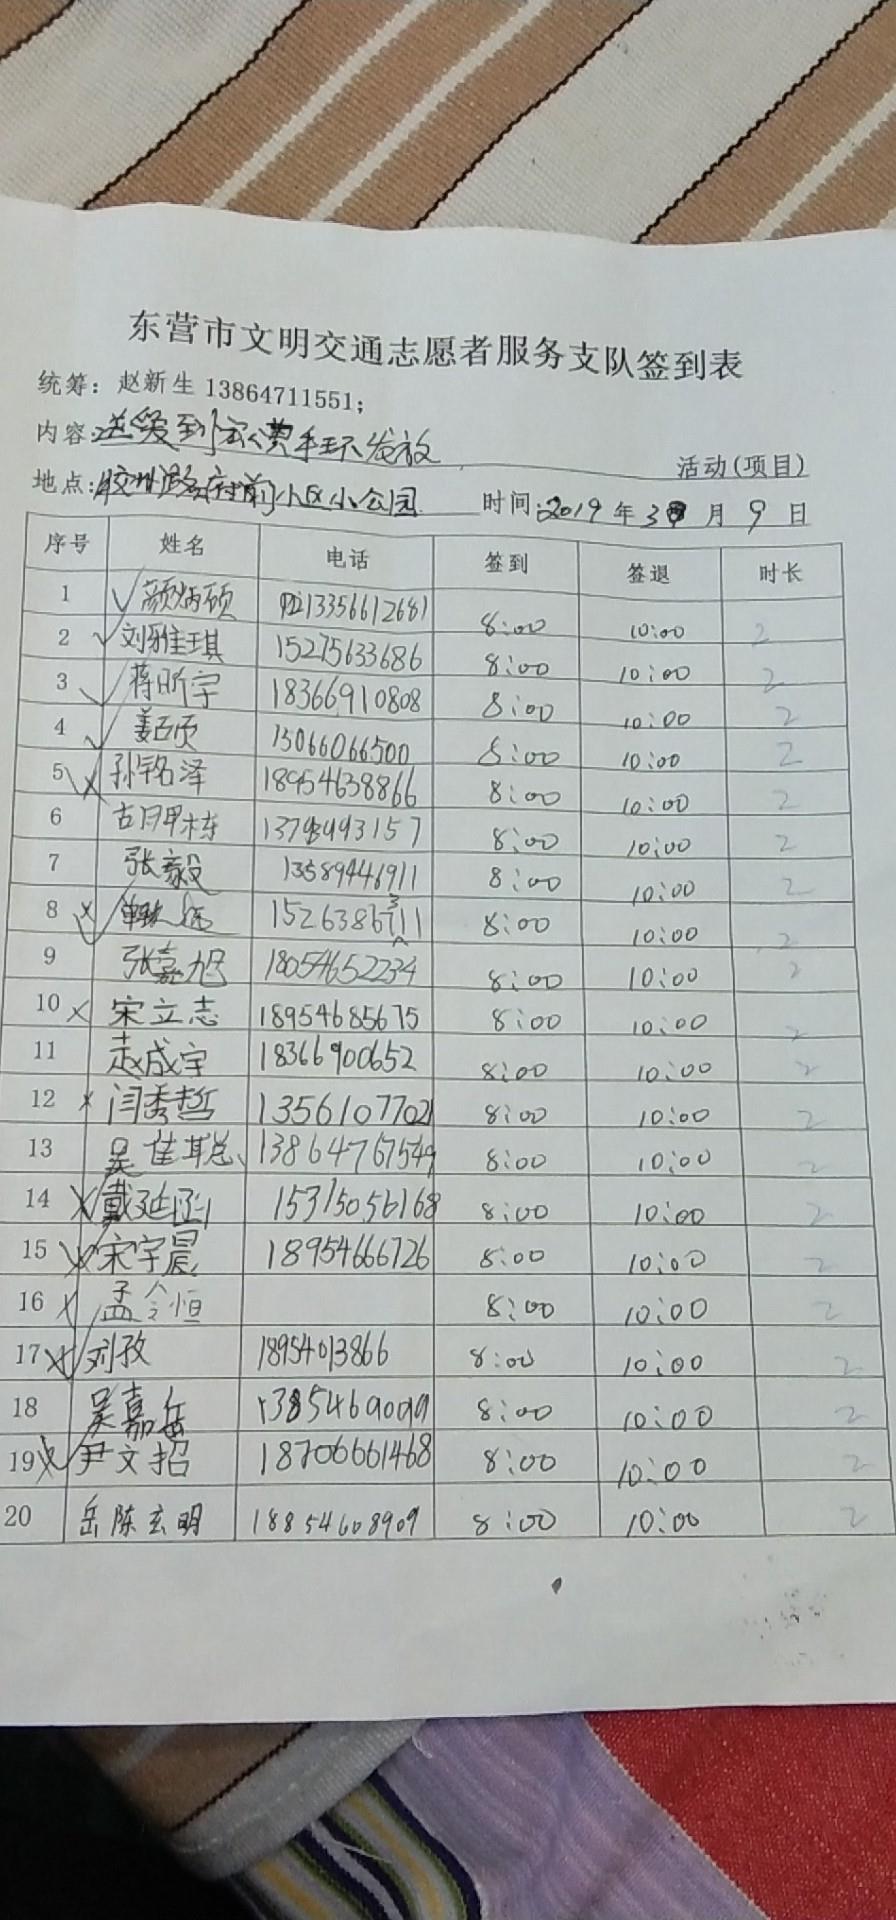 东营市文明交通志愿者服务支队签到表
统筹：赵新生 13864711551；
内容：送爱到家 费手环发放 活动(项目)
地点：胶州路府前小区小公园 时间：2019 年 3 月 9 日
序号 姓名 电话 签到 签退 时长
1 颜炳硕 13356612681 8:00 10:00 2
2 刘雅琪 15275633686 8:00 10:00 2
3 蒋昕宇 18366910808 8:00 10:00 2
4 姜百顷 15066066500 8:00 10:00 2
5 孙铭泽 18954638866 8:00 10:00 2
6 胡甲栋 8:00 10:00 2
7 张毅 13589446911 8:00 10:00 2
8 8:00 10:00 2
9 张嘉旭 18054652234 8:00 10:00 2
10 宋立志 18954685675 8:00 10:00 2
11 赵成宇 18366900652 8:00 10:00 2
12 闫秀哲 13561077021 8:00 10:00 2
13 吴佳聪 13864767549 8:00 10:00 2
14 戴延 15315056168 8:00 10:00 2
15 宋宇晨 18954666726 8:00 10:00 2
16 孟令恒 8:00 10:00 2
17 刘孜 18954013866 8:00 10:00 2
18 吴嘉岳 1385469099 8:00 10:00 2
19 尹文招 18706661468 8:00 10:00 2
20 岳陈玄明 18854608909 8:00 10:00 2